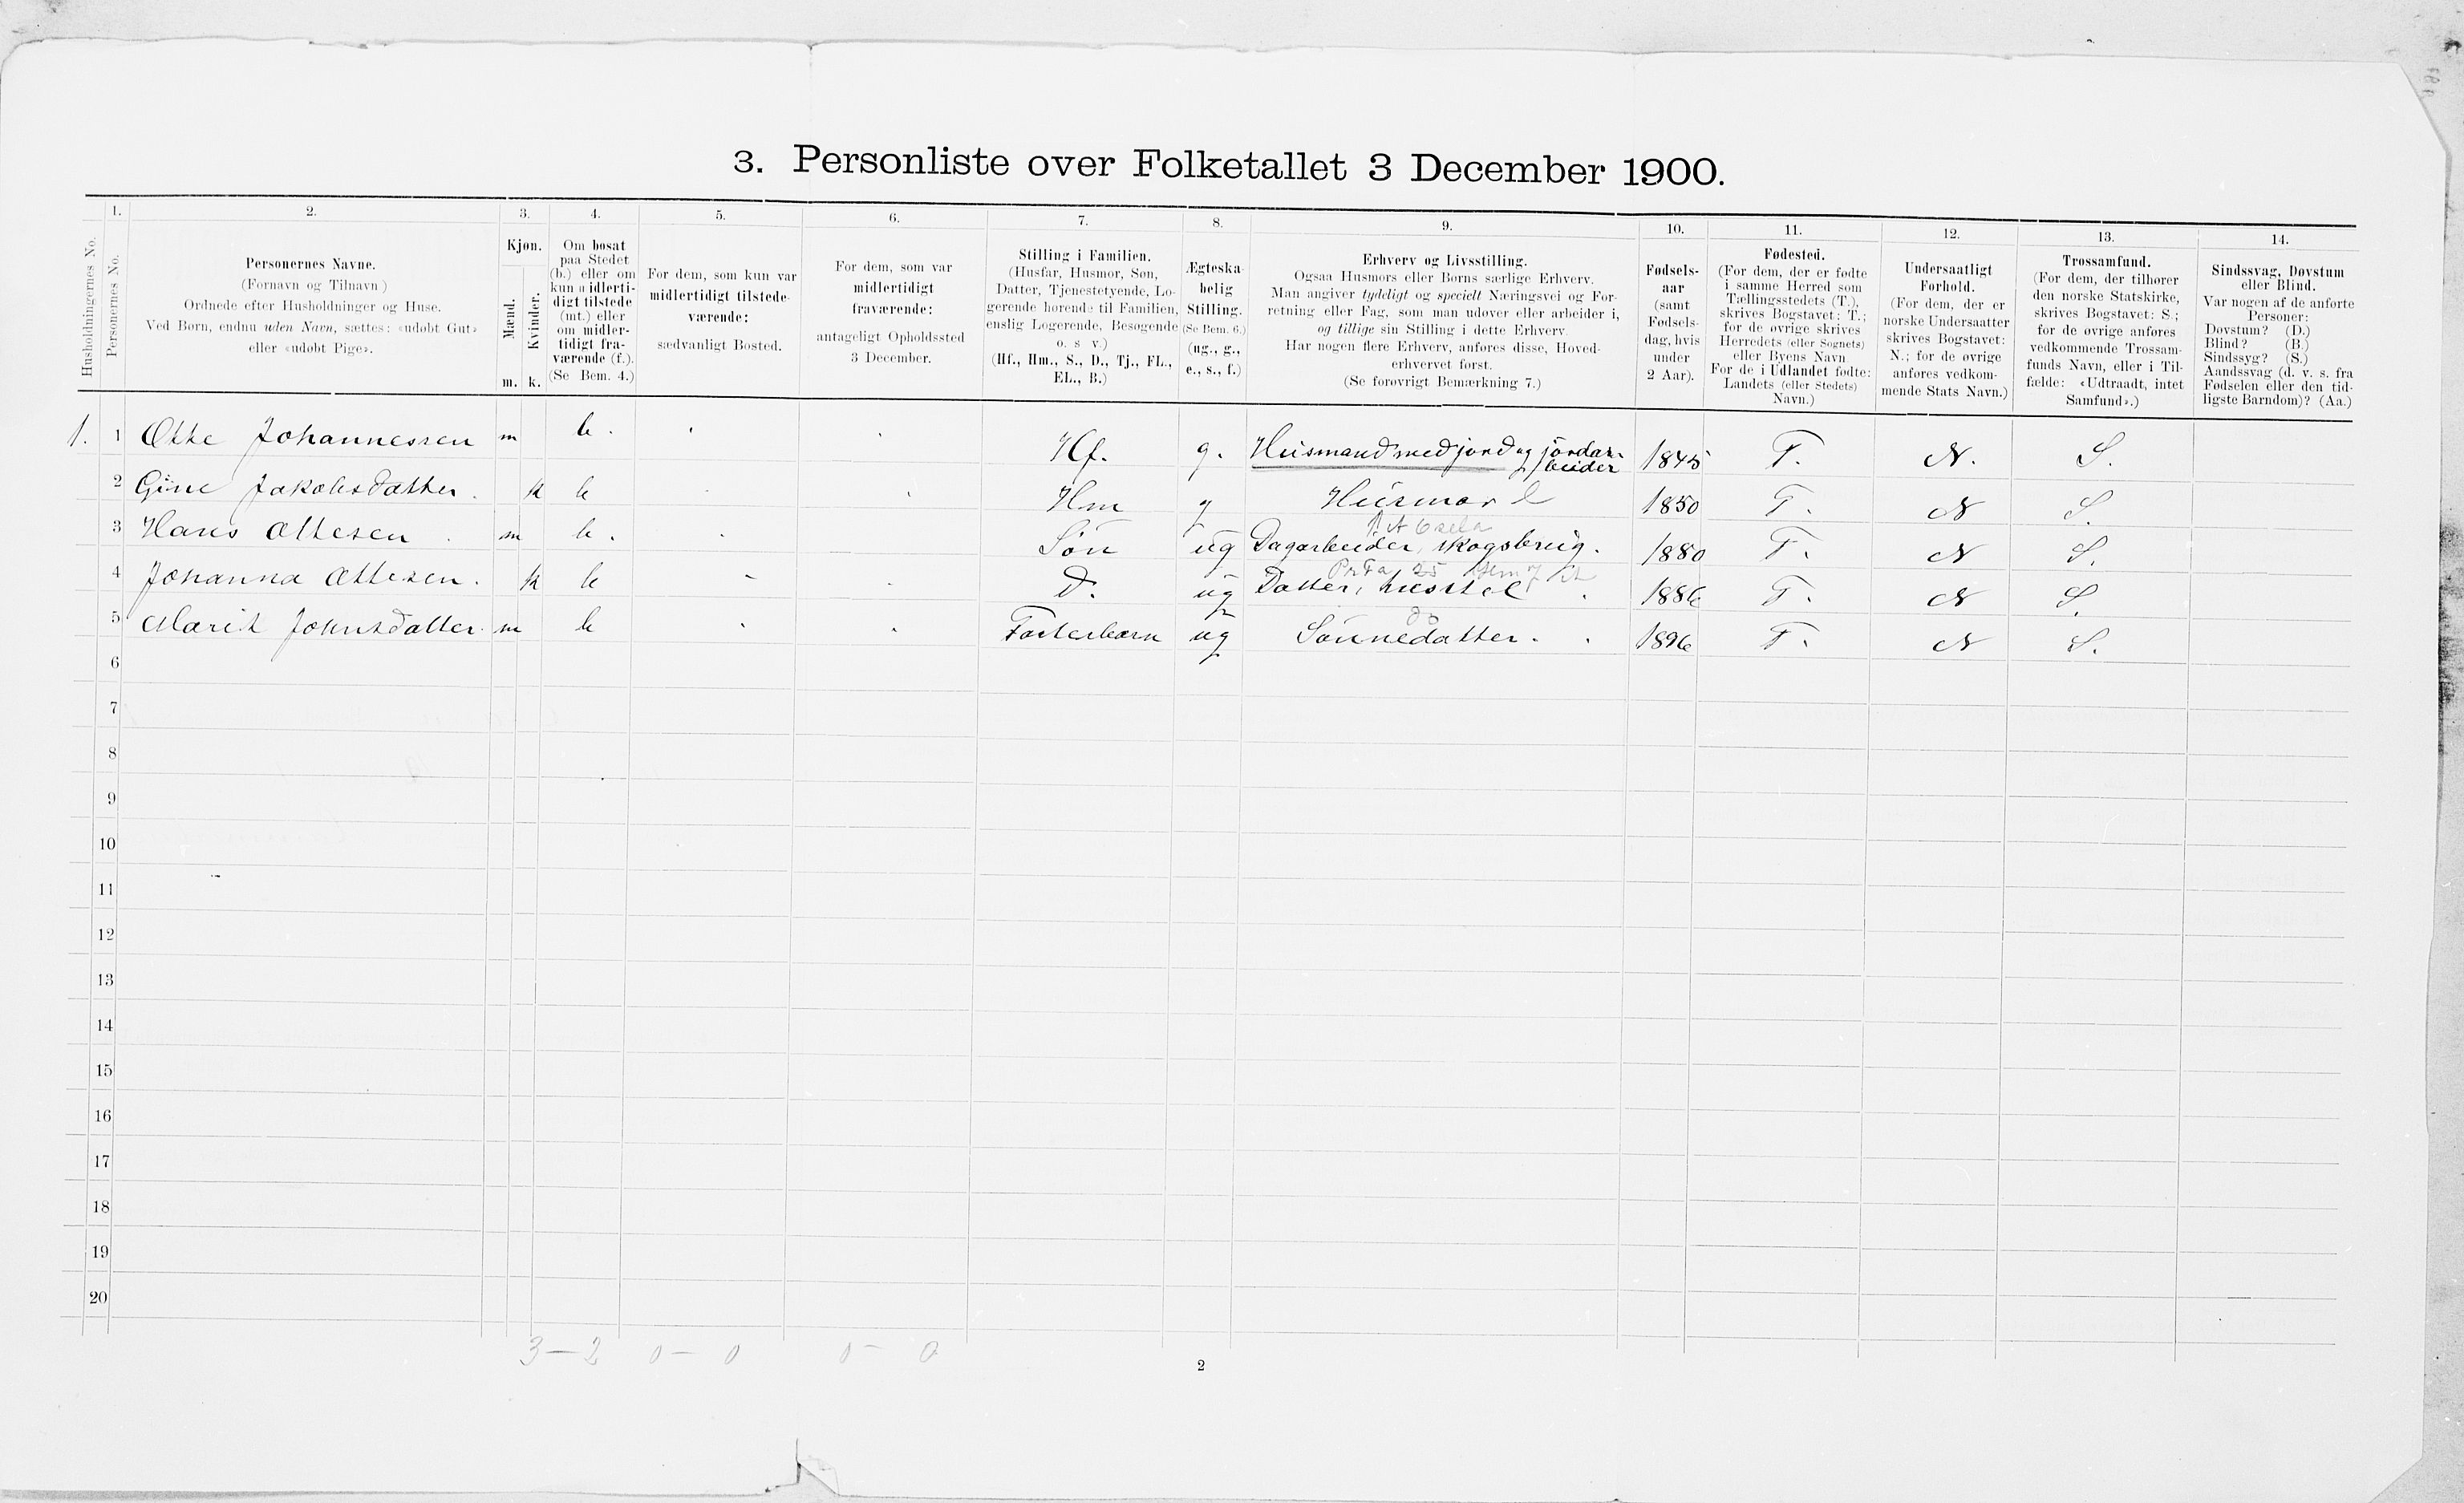 3. Personliste over Folketallet 3 December 1900.
1. 2. 3. 4. 5. 6. 7. 8. 9. 10. 11. 12. 13. 14.
Husholdningernes No.
Personernes No.
Personernes Navne.
(Fornavn og Tilnavn)
Ordnede efter Husholdninger og Huse.
Ved Børn, endnu uden Navn, sættes: «udøbt Gut»
eller «udøbt Pige».
Kjøn.
Mænd.
Kvinder.
m. k.
Om bosat
paa Stedet
(b.) eller om
kun midlerti-
digt tilstede
(mt.) eller
om midler-
tidigt fra-
værende (f.).
(Se Bem. 4.)
For dem, som kun var
midlertidigt tilstede-
værende:
sædvanligt Bosted.
For dem, som var
midlertidigt
fraværende:
antageligt Opholdssted
3 December.
Stilling i Familien.
(Husfar, Husmor, Søn,
Datter, Tjenestetyende, Lo-
gerende hørende til Familien,
enslig Logerende, Besøgende
o. s v.)
(Hf., Hm., S., D., Tj., FL.,
EL., B.)
Ægteska-
belig
Stilling.
(Se Bem. 6.)
(ug., g.,
e., s., f.)
Erhverv og Livsstilling.
Ogsaa Husmors eller Børns særlige Erhverv.
Man angiver tydeligt og specielt Næringsvei og For-
retning eller Fag, som man udøver eller arbeider i,
og tillige sin Stilling i dette Erhverv.
Har nogen flere Erhverv, anføres disse, Hoved-
erhvervet først.
(Se forøvrigt Bemærkning 7.)
Fødsels-
aar
(samt
Fødsels-
dag, hvis
under
2 Aar).
Fødested.
(For dem, der er fødte
i samme Herred som
Tællingsstedets (T.),
skrives Bogstavet: T.;
for de øvrige skrives
Herredets (eller Sognets)
eller Byens Navn
For de i Udlandet fødte:
Landets (eller Stedets)
Navn.)
Undersaatligt
Forhold.
(For dem, der er
norske Undersaatter
skrives Bogstavet:
N.; for de øvrige
anføres vedkom-
mende Stats Navn.)
Trossamfund.
(For dem, der tilhører
den norske Statskirke,
skrives Bogstavet: S.;
for de øvrige anføres
vedkommende Trossam-
funds Navn, eller i Til-
fælde: «Udtraadt, intet
Samfund».)
Sindssvag, Døvstum
eller Blind.
Var nogen af de anførte
Personer:
Døvstum? (D.)
Blind? (B.)
Sindssyg? (S.)
Aandssvag (d. v. s. fra
Fødselen eller den tid-
ligste Barndom)? (Aa.)
1. 1 Otte Johannessen m b. Hf. g. Husmand med jord og jordar-
beider 1845 T. N. S.
2 Gine Jakobsdatter. k b Hm g Husmor 1850 T. N S.
3 Hans Ottesen m b. Søn ug Dagarbeider, skogsbrug. 1880 T. N S.
4 Johanna Ottesen. k b D. ug Datter, husstel 1886 T. N S.
5 Marit Johnsdatter. m b Fosterbarn ug Sønnedatter. 1896 T. N S.
6
7
8
9
10
11
12
13
14
15
16
17
18
19
20
3 — 2 0 — 0 0 — 0
2